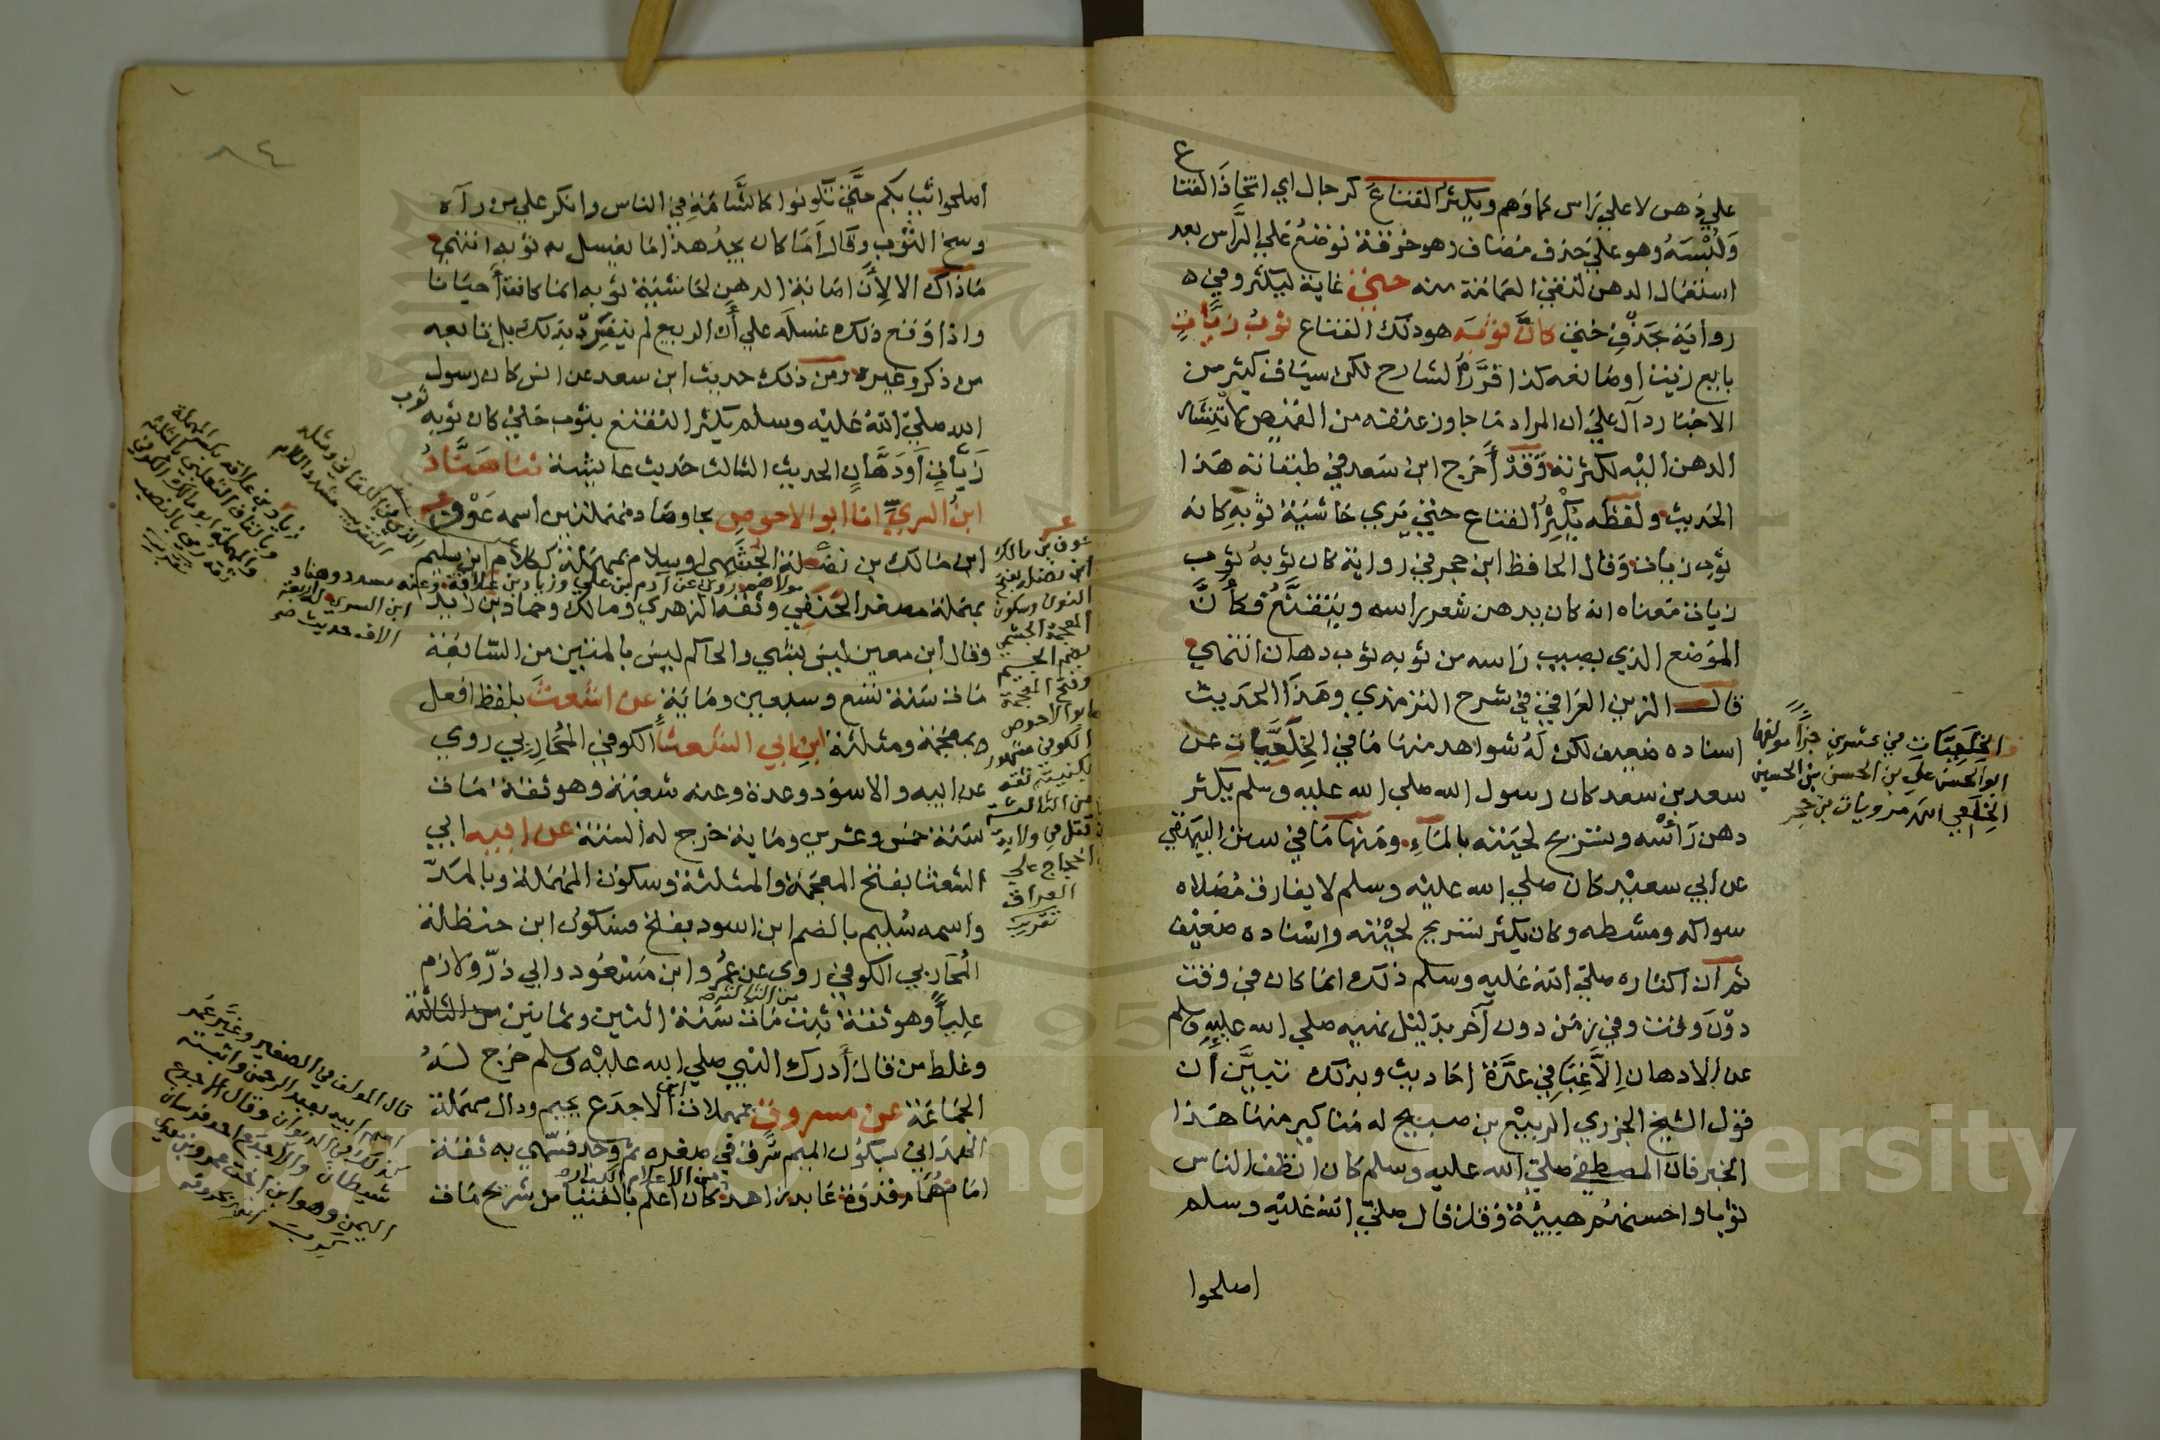 علي دهن لا علي راس كما وهم ويكثر القناع كرجال اي اتخاذ القنا
ع
ولبسه وهو علي حذف مضاف وهو خرقة توضع علي الراس بعد
استعمال الدهن لتقي العمامة منه حتي غاية ليكثر وفي
رواية بحذف حتي كان ثوبه هو ذلك القناع ثوب زيات
بايع زيت او صانعه كذا قرره الشارح لكن سياق كثير من
الاخبار دال علي ان المراد ما جاوز عنقه من القميص
الدهن اليه لكثرته وقد أخرج ابن سعد في طبقاته هذا
الحديث ولفظه يكثر القناع حتي يري حاشية ثوبه كانه
ثوب زيات وقال الحافظ ابن حجر في رواية كان ثوبه ثوب
زيات معناه انه كان يدهن شعر راسه ويتقنع فكأنَّ
الموضع الذي يصيب راسه من ثوبه ثوب دهان انتهي
قال الزين العراقي في شرح الترمذي وهذا الحديث
اسناده ضعيف لكن له شواهد منها ما في الخلعيات عن
سعد بن سعد كان رسول الله صلي الله عليه وسلم يكثر
دهن رأسه وتسريح لحيته بالماء ومنها ما في سنن البيهقي
عن ابي سعيد كان صلي الله عليه وسلم لا يفارق مصلاه
سواكه ومشطه وكان يكثر تسريح لحيته واسناده ضعيف
ثم ان اكثاره صلي الله عليه وسلم ذلك انما كان في وقت
دون وقت وفي زمن دون آخر بدليل نهيه صلي الله عليه وسلم
عن الادهان إلا غبا في عدة احاديث وبذلك تبيَّن أن
قول الشيخ الجزري الربيع بن صبيح له مناكير منها هذا
الخبر فان المصطفي صلي الله عليه وسلم كان انظف الناس
ثوبا واحسنهم هيئة وقد قال صلي الله عليه وسلم
اصلحوا
الخلعيات في عشرين جزأ مؤلفها
ابو الحسن علي بن الحسن بن الحسين
الخلعي مرويات بن حجر
٨٤
أصلحوا ثيابكم حتي تكونوا كالشامة في الناس وانكر علي من رآه
وسخ الثوب وقال أما كان يجد هذا ما يغسل به ثوبه انتهي
ماذاك الا لأن اصابة الدهن لحاشية ثوبه انما كانت أحيانا
واذا وقع ذلك غسله علي أن الربيع لم ينفرد بذلك بل تابعه
من ذكر وغيره ومن ذلك حديث ابن سعد عن انس كان رسول
الله صلي الله عليه وسلم يكثر التقنع بثوب حتي كان ثوبه
ثوب
زيات أو دهان الحديث الثالث حديث عايشة ثنا هناد
ابن السري انا ابو الاحوص بحا وصاد مهملتين اسمه عوف
ابن مالك بن نضلة الجشمي او سلام بمهملة ككلام ابن سليم
مولاهم روي عن آدم بن علي وزياد بن علاقة وعنه مسدد وهناد
ابن السري له اربعة
الاف حديث صح
بمهملة مصغر الحنفي وثقه الزهري ومالك وحماد بن زيد
وقال ابن معين ليس بشي والحاكم ليس بالمتين من السابعة
مات سنة تسع وسبعين وماية عن اشعث بلفظ افعل
وبمعجمة ومثلثة ابن ابي الشعثا الكوفي المحاربي روي
عن ابيه والاسود وعدة وعنه شعبة وهو ثقة مات
سنة خمس وعشرين وماية خرج له الستة عن ابيه ابي
الشعثا بفتح المعجمة والمثلثة وسكون المهملة وبالمدّ
واسمه سليم بالضم ابن اسود بفتح فسكون ابن حنظلة
المحاربي الكوفي روي عن عمر وابن مسعود وابي ذر ولازم
علياً وهو ثقة ثبت مات سنة اثنين وثمانين من الثالثة
وغلط من قال أدرك النبي صلي الله عليه وسلم خرج له
الجماعة عن مسروق بمهملات ابن الاجدع بجيم ودال مهملة
الهمداني بسكون الميم سرق في صغره ثم وجد فسمي به ثقة
من الاعلام الكبار
امام همام قدوة عابد زاهد كان اعلم بالفتيا من شريح مات
عوف بن مالك
ابن نضلة بفتح
النون وسكون
المعجمة الجشمي
بضم الجيم
وفتح المعجمة
ابو الاحوص
الكوفي مشهور
بكنيته ثقة
من الثالثة
قتل في ولاية
الحجاج علي
العراق
تقريب
زياد بن علاقة بكسر المهملة
وبالقاف الثعلبي بالمثلثة
والمهملة ابو مالك الكوفي
ثقة رمي بالنصب
قال المولف في الصغير وغير عمر
اسم ابيه بعبد الرحمن واثبته
كذلك في الديوان وقال الاجدع
شيطان والاجدع احد فرسان
اليمن وهو ابن اخت عمرو بن معدي
كرب